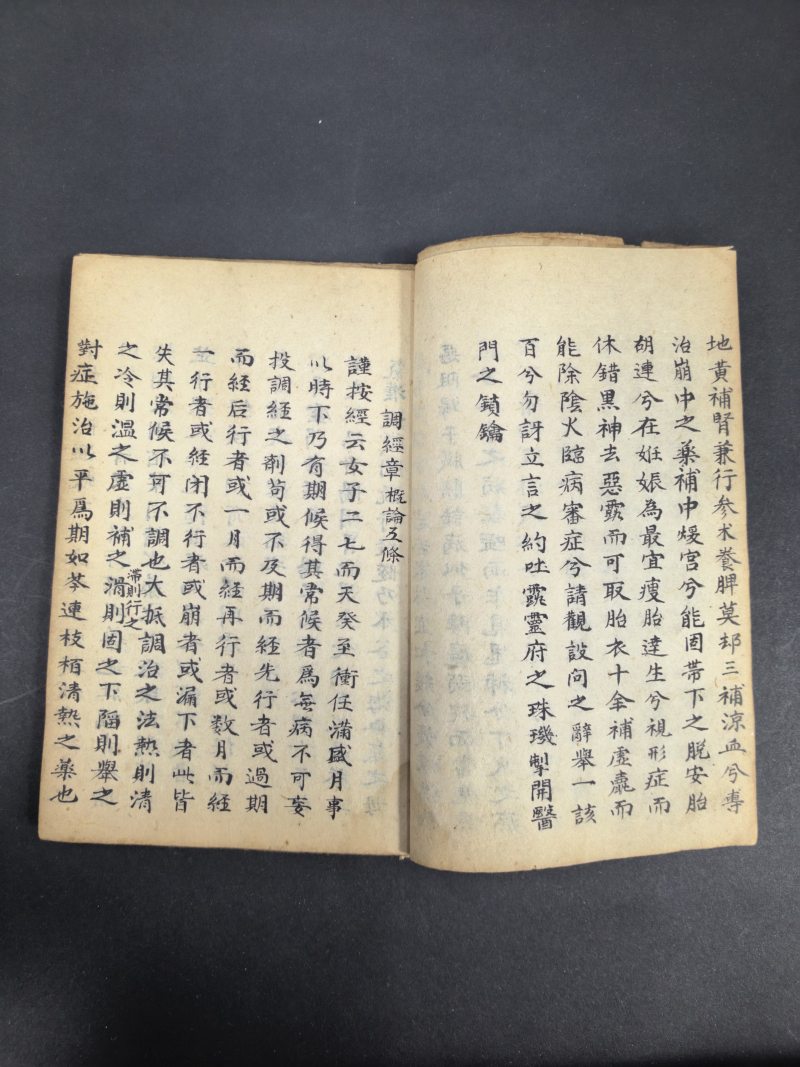 地黃補腎兼行參朮養脾莫却三補涼血兮專
治崩中之藥補中煖宮兮能固帶下之脫安胎
胡連兮在姙娠為最宜瘦胎達生兮視形症而
休錯黑神去惡露而可取胎衣十全補虛羸而
能除陰火臨病審症兮請觀設問之辭舉一該
百兮勿訝立言之約吐露靈府之珠璣掣開醫
門之鎖鑰
調經章概論五條
謹按經云女子二七而天癸至衝任滿盛月事
以時下乃有期候得其常候者為無病不可妄
投調經之劑苟或不及期而經先行者或過期
而経后行者或一月而経再行者或数月而経
一行者或経閉不行者或崩者或漏下者此皆
失其常候不可不調也大抵調治之法熱則清
之冷則溫之虛則補之滯則行之滑則固之下陷則舉之
對症施治以平爲期如芩連枝栢清熱之藥也